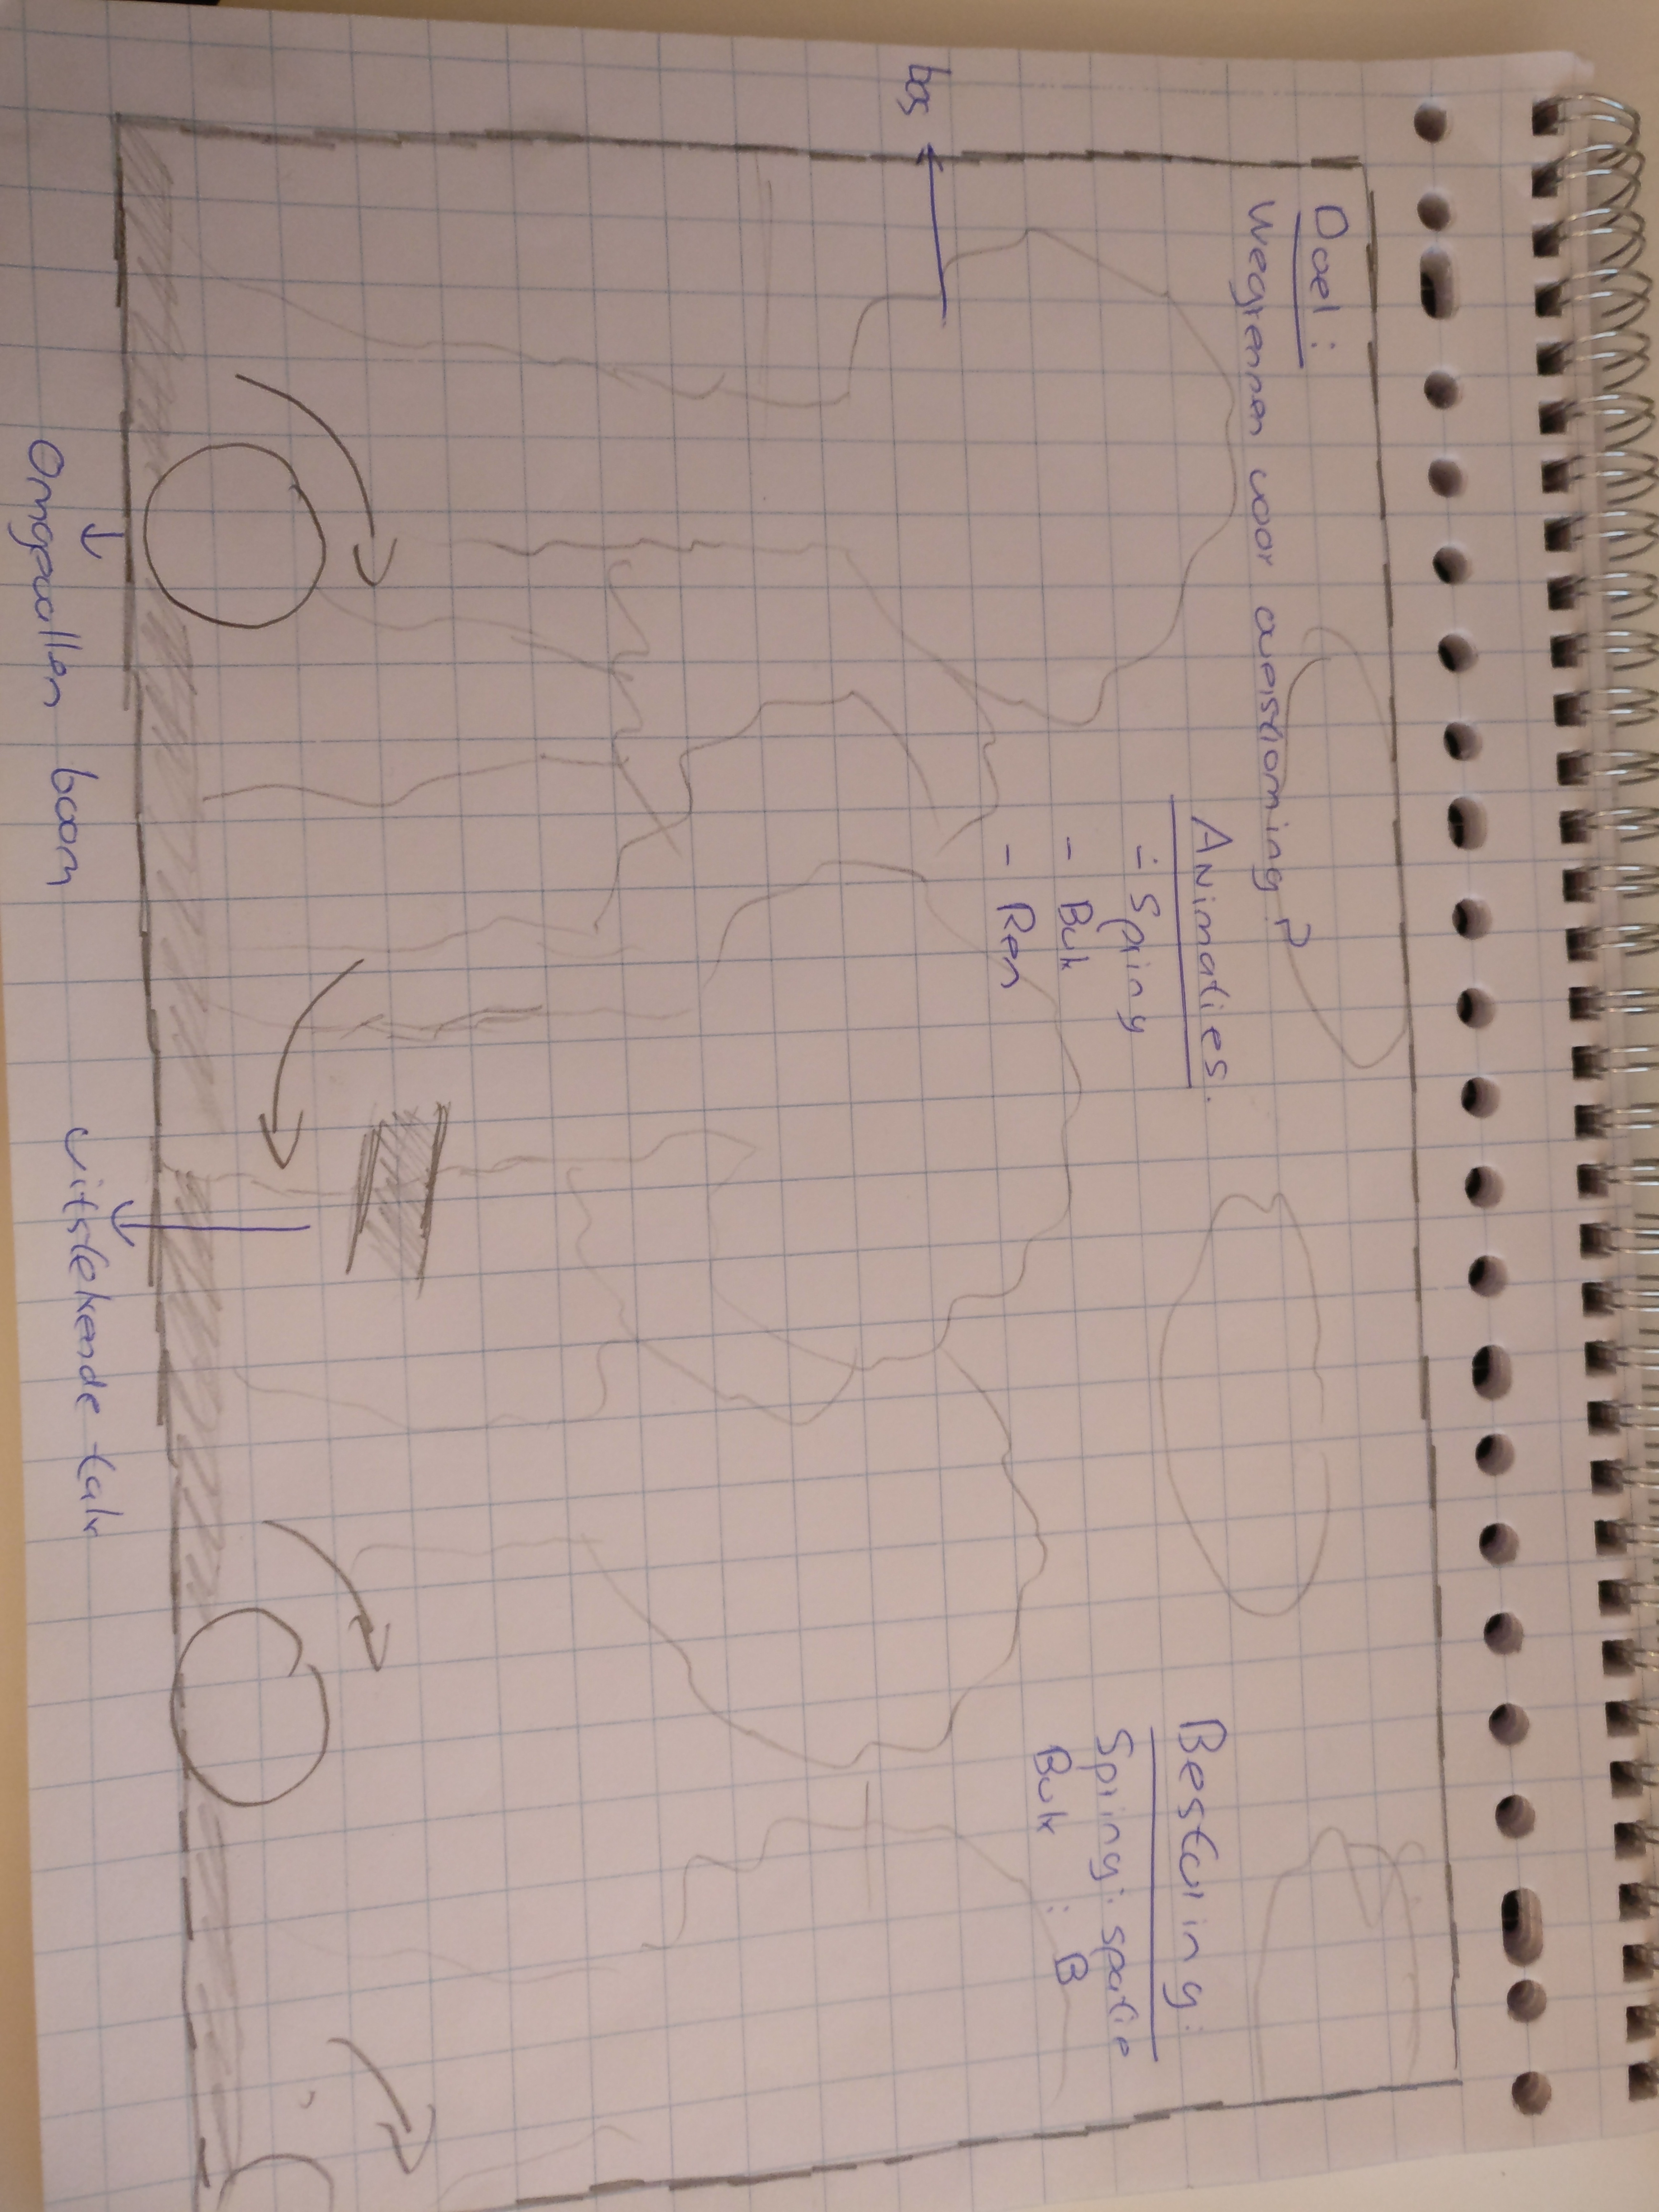 Doel:
Wegrennen voor overstroming?
Animaties.
- Spring
- Buk
- Ren
Besturing:
Spring: spatie
Buk : B
bos
Omgevallen boom
uitstekende tak